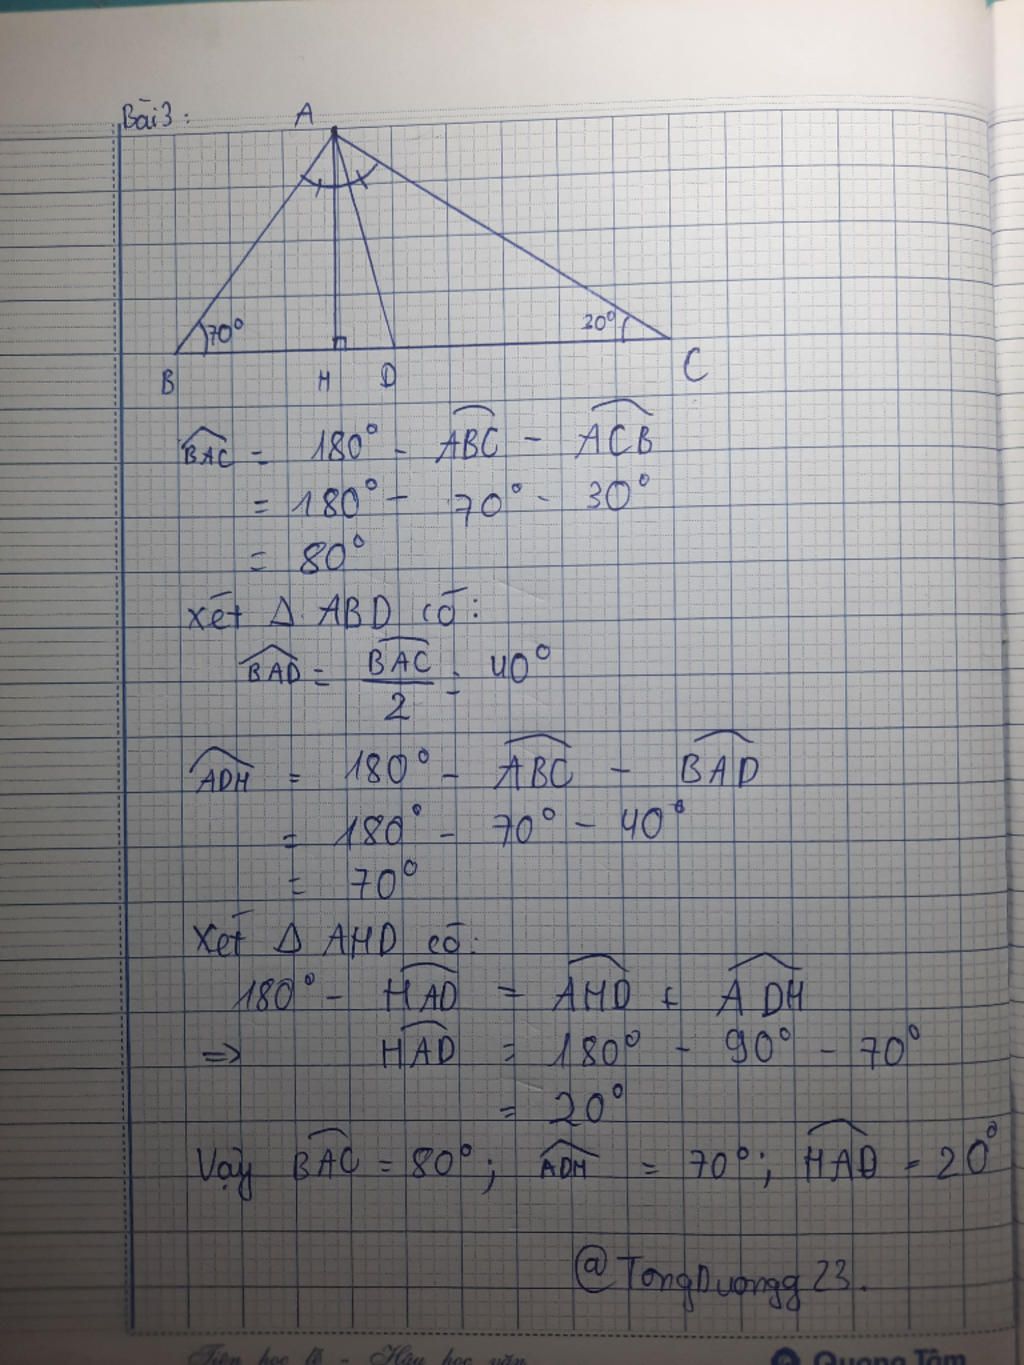 Bài 3:
A
70°
30°
B H D C
BAC = 180° - ABC - ACB
= 180° - 70° - 30°
= 80°
Xét Δ ABD có:
BAD = BAC/2 = 40°
ADH = 180° - ABC - BAD
= 180° - 70° - 40°
= 70°
Xét Δ AHD có:
180° - HAD = AHD + ADH
=> HAD = 180° - 90° - 70°
= 20°
Vậy BAC = 80°; ADH = 70°; HAD = 20°
@TongDuongg23.
Tiên học lễ - Hậu học văn
Quang Tâm